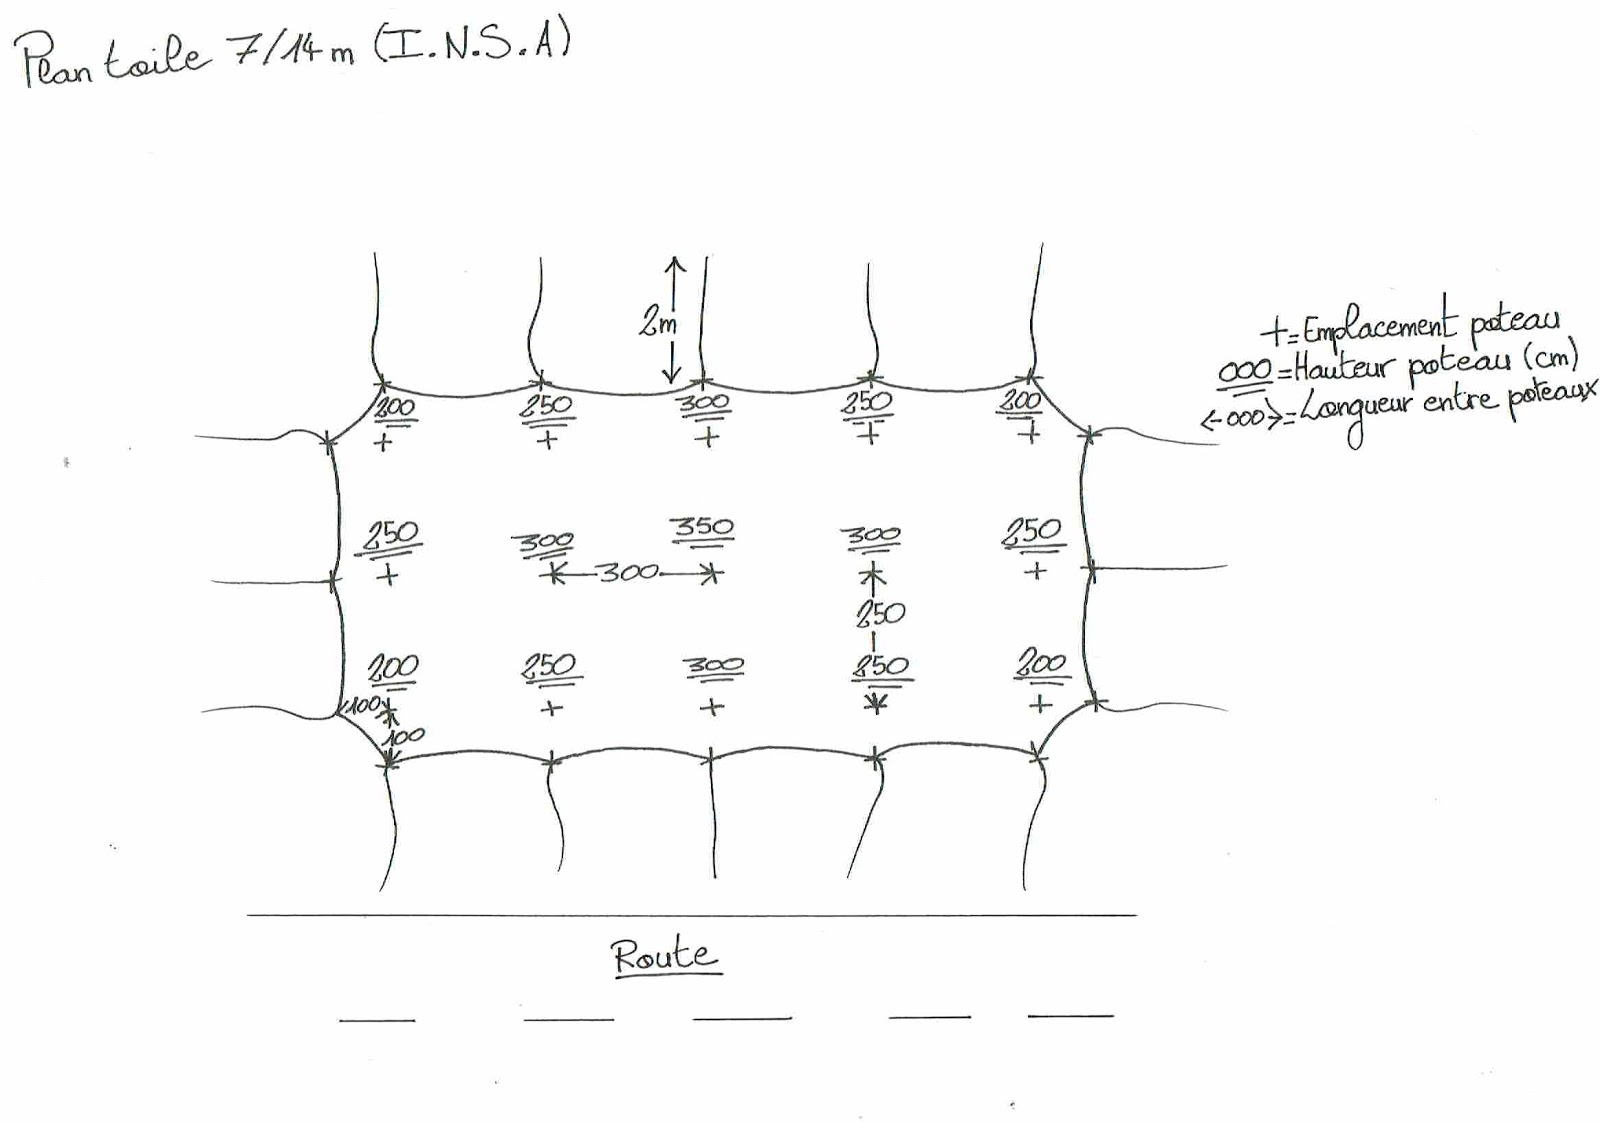 Plan toile 7/14m (I.N.S.A)
2m
+=Emplacement poteau
000=Hauteur poteau (cm)
<-000>=Longueur entre poteaux
200 250 300 250 200
250 300 350 300 250
300
250
200 250 300 250 200
100
100
Route